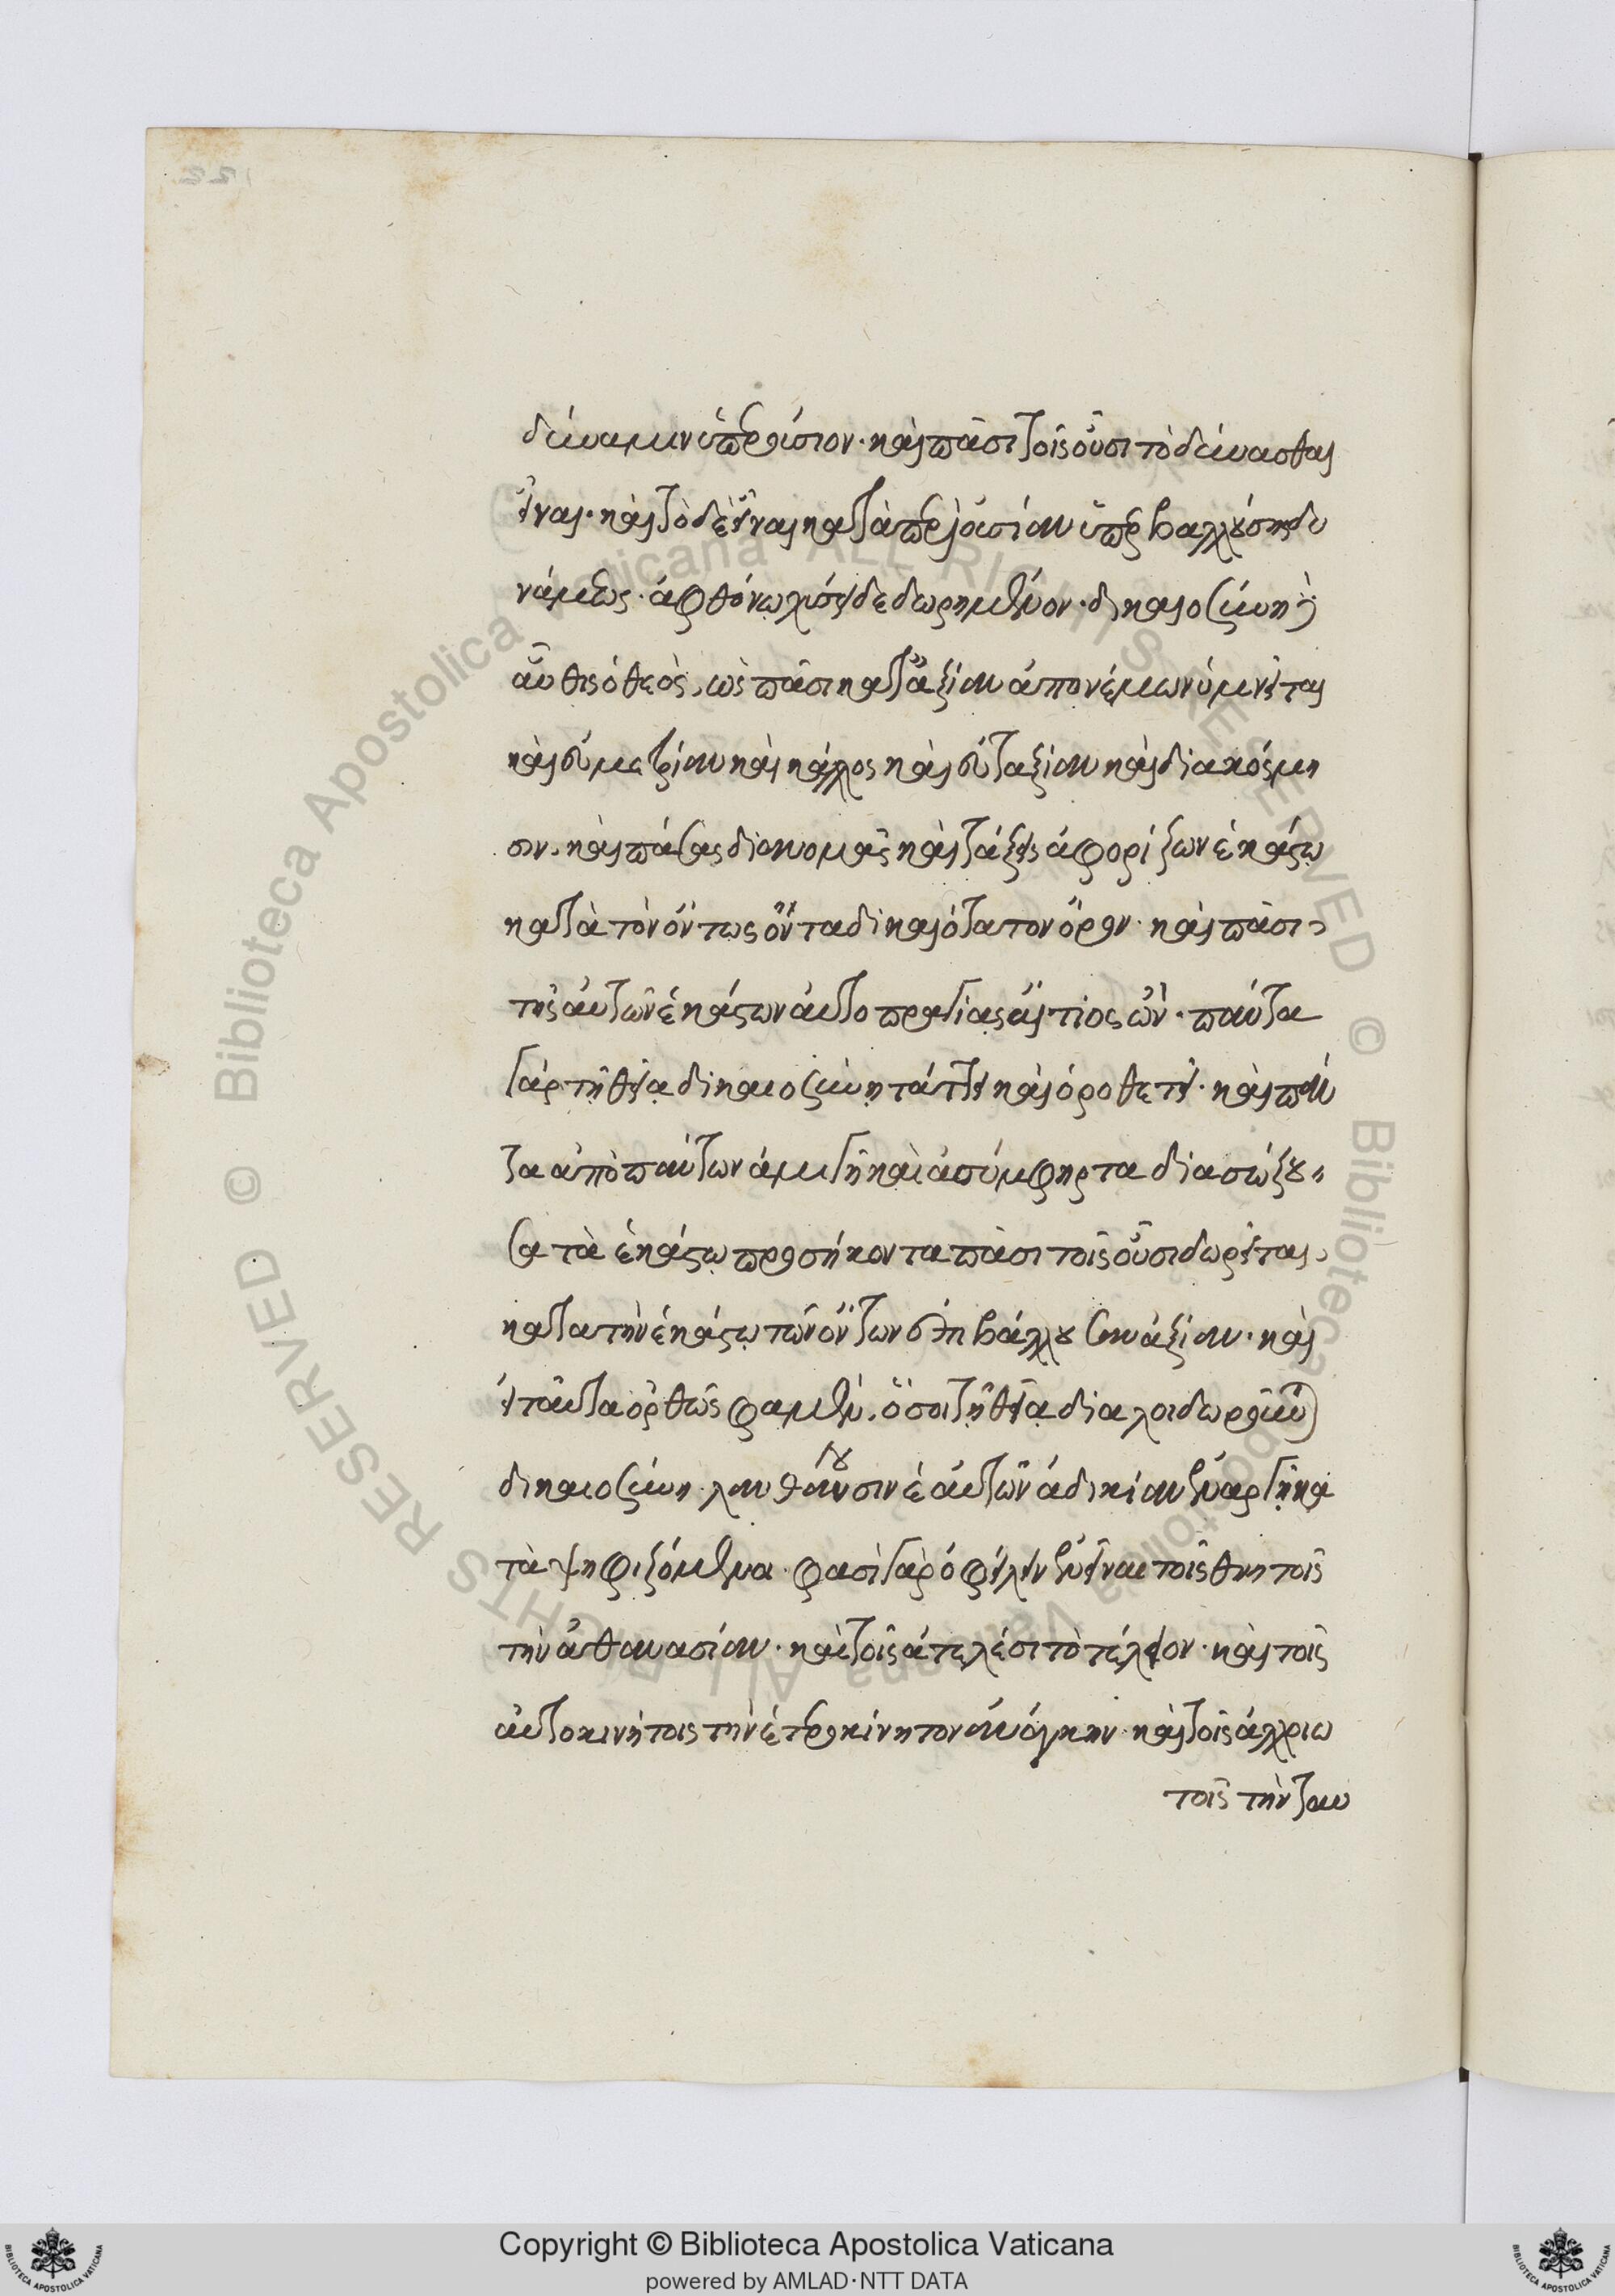 δύναμιν ὑπερούσιον· καὶ πᾶσι τοῖς οὖσι τὸ δύνασθαι
εἶναι· καὶ τὸ δὲ εἶναι κατὰ περιουσίαν ὑπερβαλλούσης δυ
νάμεως· ἀφθόνῳ χύσει δεδωρημένον· δικαιοσύνη δὲ
αὖθις ὁ θεὸς, ὡς πᾶσι κατ' ἀξίαν ἀπονέμων ὑμνεῖται
καὶ συμετρίαν καὶ κάλλος καὶ εὐταξίαν καὶ διακόσμη
σιν· καὶ πάσας διανομὰς καὶ τάξεις ἀφορίζων ἑκάστῳ
κατὰ τὸν ὄντως ὄντα δικαιότατον ὅρον· καὶ πᾶσι
τῆς αὐτῶν ἑκάστων αὐτοπραγίας αἴτιος ὤν· πάντα
γὰρ τῇ θείᾳ δικαιοσύνη τάττει καὶ ὁροθετεῖ· καὶ πάν
τα ἀπὸ πάντων ἀμιγῆ καὶ ἀσύμφηρτα διασώζου
σα τὰ ἑκάστῳ προσήκοντα πᾶσι τοῖς οὖσι δωρεῖται,
κατα τὴν ἑκάστῳ τῶν ὄντων ἐπιβάλλουσαν ἀξίαν· καὶ
εἰ ταῦτα ὀρθῶς φαμὲν, ὅσοι τῇ θείᾳ διαλοιδωροῦνται
δικαιοσύνη λανθάνουσιν ἑαυτῶν ἀδικίαν ἐναργῆ κα
τὰ ψηφιζόμενοι· φασὶ γὰρ ὀφείλειν ἐνεῖναι τοῖς θνητοῖς
τὴν ἀθανασίαν· καὶ τοῖς ἀτελέσι τὸ τέλειον· καὶ τοῖς
αὐτοκινήτοις τὴν ἑτεροκίνητον ἀνάγκην· καὶ τοῖς ἀλλοιω
τοῖς τὴν ταυ
Copyright © Biblioteca Apostolica Vaticana
powered by AMLAD·NTT DATA